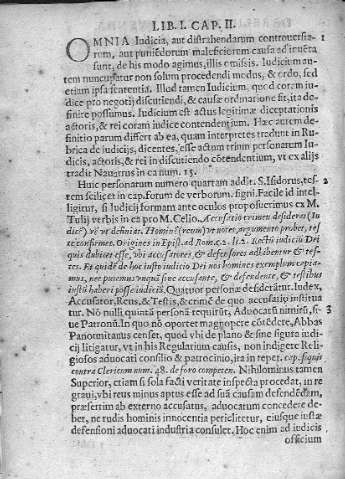 LIB. I. CAP. II.
OMNIA Iudicia, aut distrahendarum controuersia- 1
rum, aut puniendorum maleficiorum causa inuenta
sunt, de his modo agimus, illis emissis. Iudicium au-
tem nuncupatur non solum procedendi modus, & ordo, sed
etiam ipsa sententia. Illud tamen Iudicium, quod coram iu-
dice pro negotij discutiendi, & causæ ordinatione fit, ita de-
finire possumus. Iudicium est actus legitimæ disceptationis
actoris, & rei coram iudice contendentium. Hæc autem defi-
nitio parum differt ab ea, quam interpretes tradunt in Ru-
brica de iudicijs, dicentes, esse actum trium personarum Iu-
dicis, actoris, & rei in discutiendo cōtendentium, vt ex alijs
tradit Nauarrus in ca num. 15.
Huic personarum numero quartam addit S. Isidorus, tes- 2
tem scilicet in cap. forum de verborum signi. Facile id intel-
ligitur, si Iudicij formam ante oculos proposuerimus ex M.
Tulij verbis in ea pro M. Celio. Accusatio crimen desiderat (Iu-
dicē) vt definiat. Hominē (reum) vt notet, argumento probet, tes-
te confirmet. Origines in Epist. ad Rom. c. 2. li. 2. Iudicij Dei
quis dubitet esse, vbi accusatores, & defensores adhibentur & tes-
tes. Et quidē de hoc iusto iudicio Dei nos homines exemplum capia-
mus, nec putemus sine accusante, & defendente, & testibus
iustū haberi posse iudiciū. Quatuor personæ desiderātur. Iudex,
Accusator, Reus, & Testis, & crimē de quo accusatio institua
tur. Nō nulli quintā personā requirūt, Aduocatū nimirū, si- 3
ue Patronū. In quo nō oportet magnopere cōtēdere, Abbas
Panormitanus censet, quod vbi de plano & sine figura iudi-
cij litigatur, vt in his Regularium causis, non indigere Reli-
giosos aduocati consilio & patrocinio, ita in repet. cap. si quis
contra Clericum num. 48. de foro competen. Nihilominus tamen
Superior, etiam si sola facti veritate inspecta procedat, in re
graui, vbi reus minus aptus esse ad suā causam defendēdam,
præsertim ab externo accusatus, aduocatum concedere de-
bet, ne rudis hominis innocentia periclitetur, eiusque iustæ
defensioni aduocati industria consulet. Hoc enim ad iudicis
officium